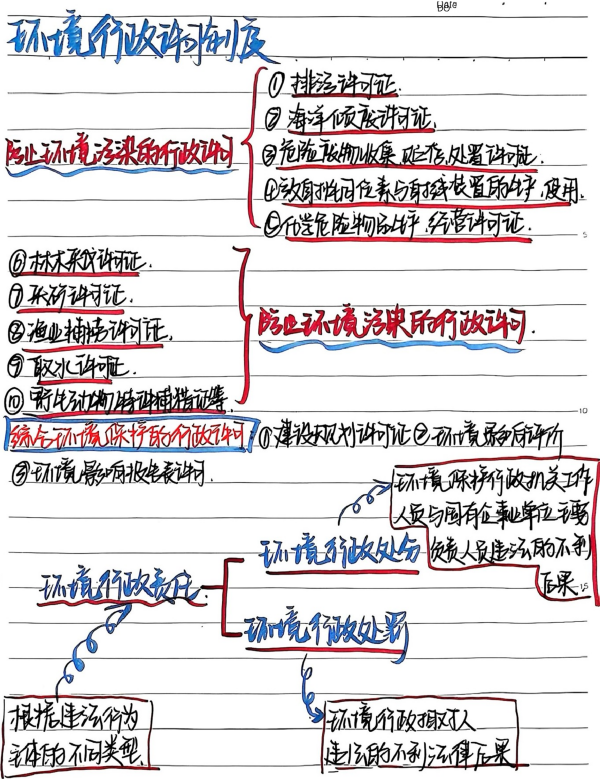 Date
环境行政许可制度
① 排污许可证.
② 海洋倾废许可证.
防止环境污染的行政许可
③危险废物收集,贮存,处置许可证.
④放射性同位素与射线装置的生产,使用.
⑤化学危险物品生产,经营许可证.
5
⑥林木采伐许可证.
⑦采矿许可证.
⑧渔业捕捞许可证.
防止环境污染的行政许可.
⑨取水许可证.
⑩野生动物特许捕猎证等.
10
综合环境保护的行政许可 ①建设规划许可证 ②环境影响评价
③环境影响报告表许可.
环境保护行政机关工作
人员与国有企事业单位主要
负责人员违法的不利
后果
环境行政处分
环境行政责任
15
环境行政处罚
根据违法行为
主体的不同类型.
环境行政相对人
违法的不利法律后果